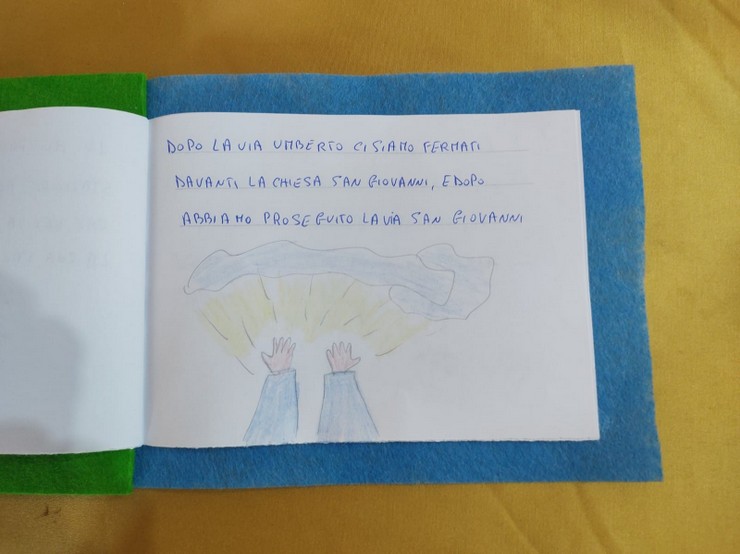 DOPO LA VIA UMBERTO CI SIAMO FERMATI
DAVANTI LA CHIESA SAN GIOVANNI, E DOPO
ABBIAMO PROSEGUITO LA VIA SAN GIOVANNI